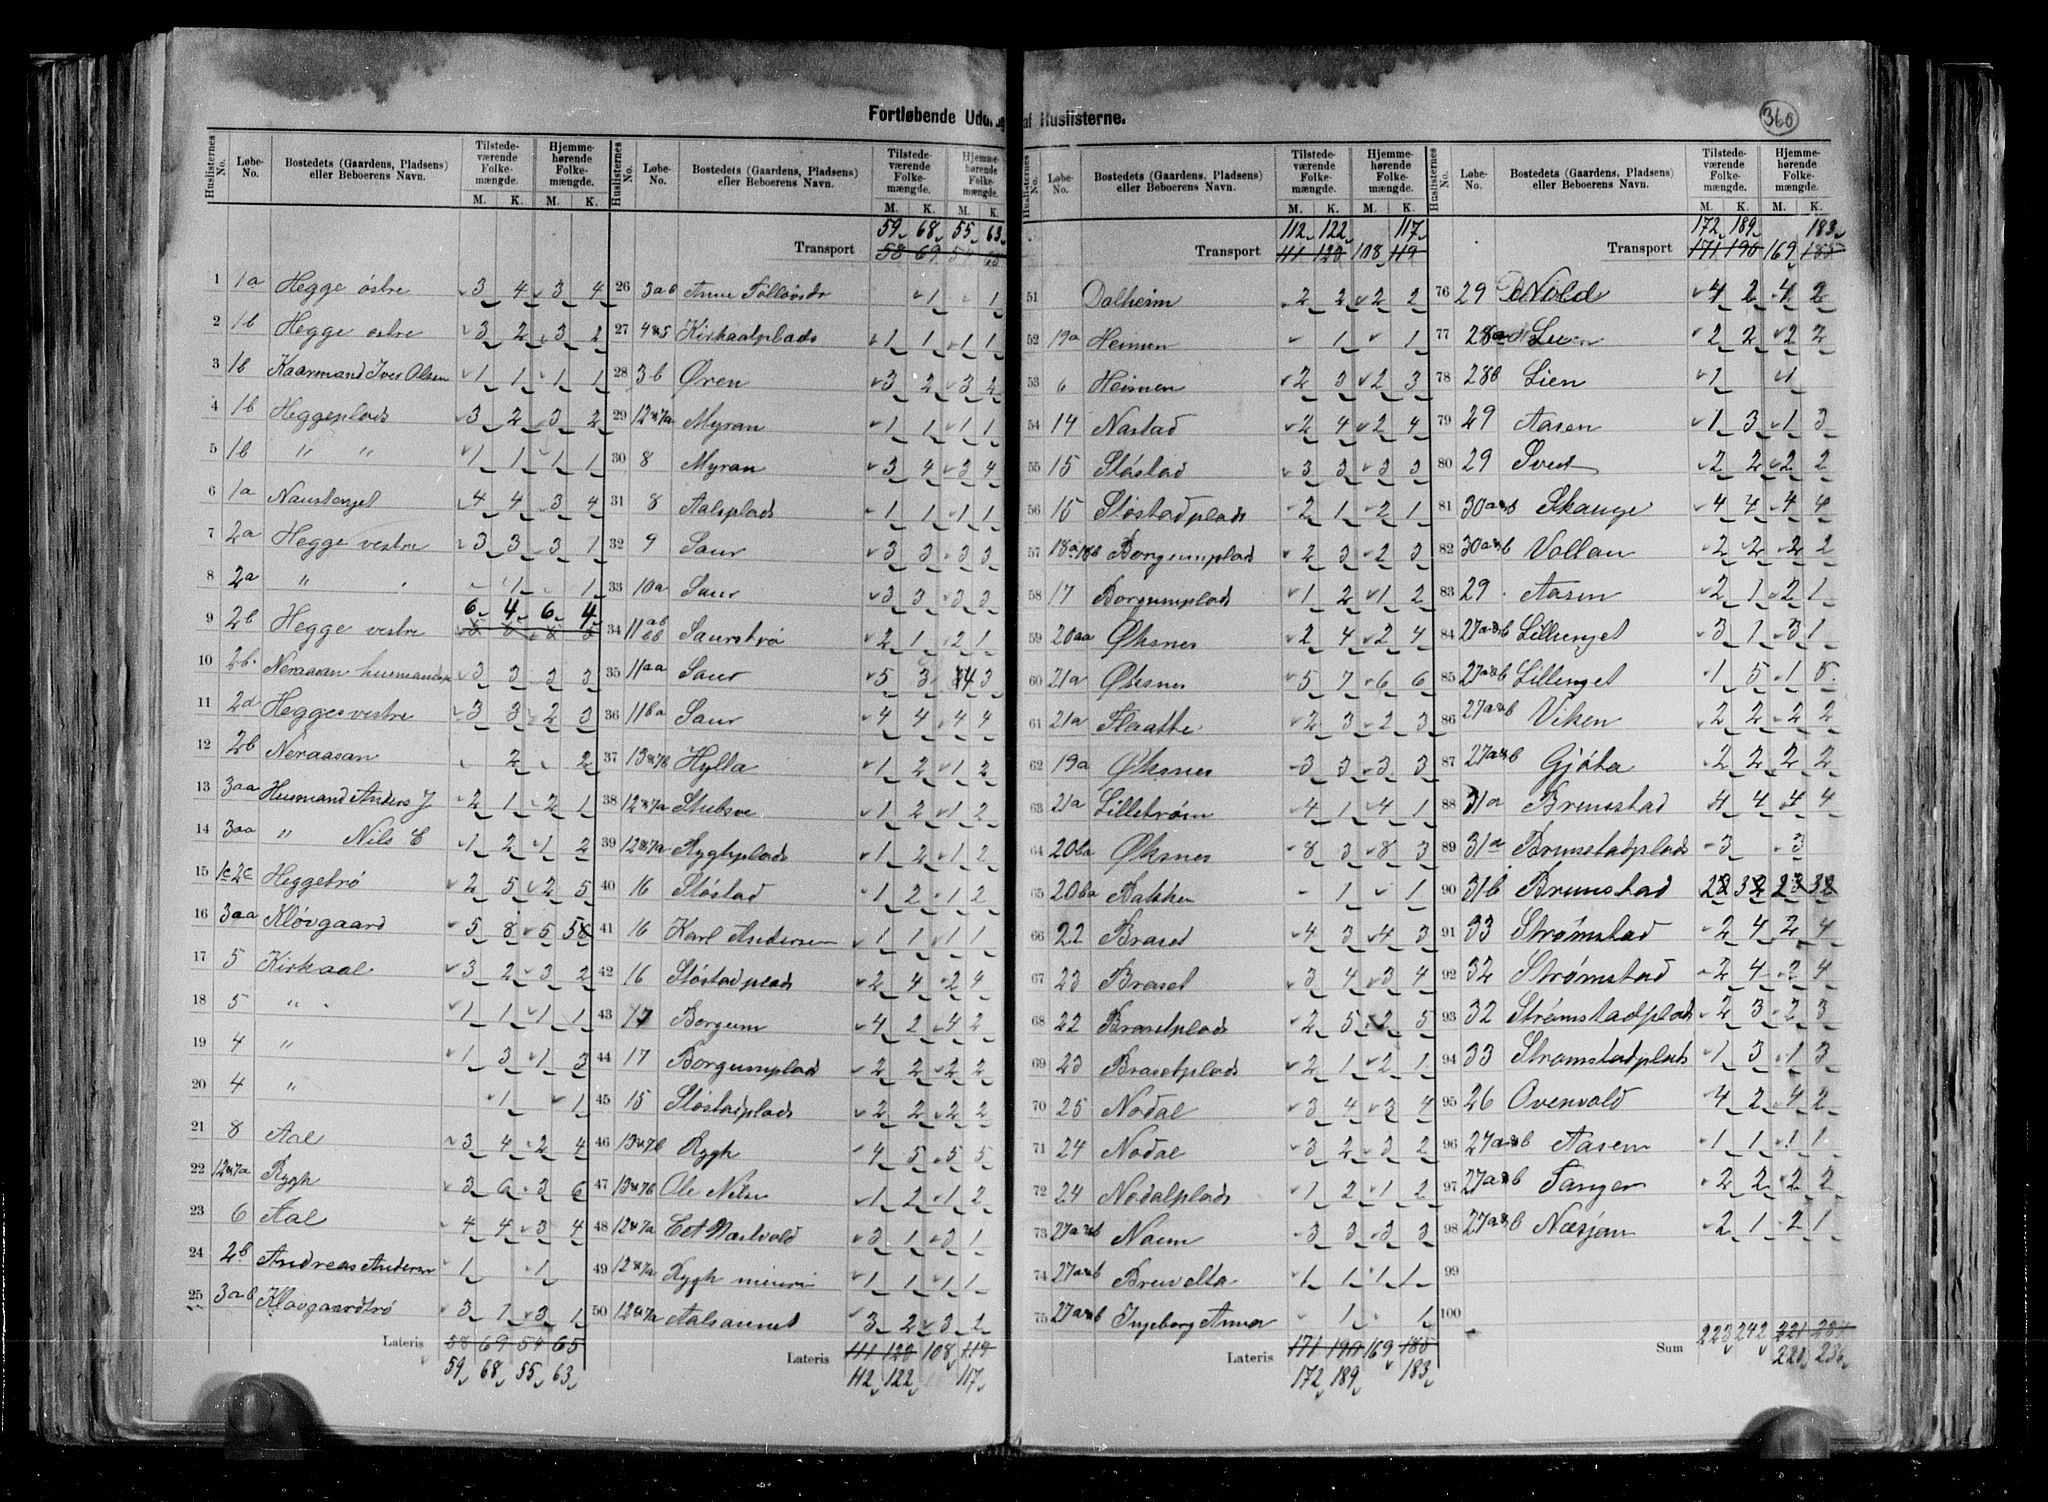 Fortløbende Uddrag af Huslisterne.
360
Huslisternes No. Løbe-No. Bostedets (Gaardens, Pladsens) eller Beboerens Navn. Tilstedeværende Folkemængde. M. K. Hjemmehørende Folkemængde. M. K.
1 1a Hegge østre 3 4 3 4
2 1b Hegge østre 3 2 3 2
3 1b Kaarmand Iver Olsen 1 1 1 1
4 1b Heggeplads 3 2 3 2
5 1b " " 1 1 1 1
6 1a Naustenget 4 4 3 4
7 2a Hegge vestre 3 3 3 1
8 2a " 1 1
9 2b Hegge vestre 6 4 6 4
10 2b. Neraasan 3 3 3 3
11 2d Hegge vestre 3 3 2 3
12 2b Neraasan 2 2
13 3aa Husmand Anders J 2 1 2 1
14 3aa " Nils E 1 2 1 2
15 1c 2c Heggetrø 2 5 2 5
16 3aa Kløvgaard 5 8 5 5
17 5 Kirkaal 3 2 3 2
18 5 " 1 1 1 1
19 4 " 1 3 1 3
20 4 " 1 1
21 8 Aal 3 4 2 4
22 12&7a Rygh 3 6 3 6
23 6 Aal 4 4 3 4
24 2b Andreas Andersen 1 1
25 3ab Kløvgaardtrø 3 1 3 1
Lateris 58 69 54 65
59 68 55 63
59 68 55 63
Transport 58 69
26 3ab Anne 1 1
27 4&5 Kirkaalplads 1 1 1 1
28 3b Øren 3 2 3 2
29 12&7a Myran 1 1 1 1
30 8 Myran 3 4 3 4
31 8 Aalsplads 1 1 1 1
32 9 Saur 3 3 3 3
33 10a Saur 3 3 3 3
34 11ab Saurstrø 2 1 2 1
35 11aa Saur 5 3 4 3
36 11ba Saur 4 4 4 4
37 13&7b Hylla 1 2 1 2
38 12&7a Stubsve 1 2 1 2
39 12&7a Ryghplads 1 2 1 2
40 16 Støstad 1 2 1 2
41 16 Karl Andersen 1 1 1 1
42 16 Støstadplads 2 4 2 4
43 17 Borgum 4 2 4 2
44 17 Borgumplads 2 2 2 2
45 15 Støstadplads 2 2 2 2
46 13&7b Rygh 4 5 5 5
47 13&7b Ole Nilsr 1 2 1 2
48 12&7a 3 1 3 1
49 12&7a Rygh 1 1 1 1
50 12&7a Aalsaunet 3 2 3 2
Lateris 111 120 108 119
112 122 117
112 122 117
Transport 111 120 108 119
51 Dalheim 2 2 2 2
52 19a Heimen 1 1
53 6 Heimen 2 3 2 3
54 14 Nastad 2 4 2 4
55 15 Støstad 3 3 3 3
56 15 Støstadplads 2 1 2 1
57 18a 18b Borgumplads 2 3 2 3
58 17 Borgumplads 1 2 1 2
59 20aa Øksnes 2 4 2 4
60 21a Øksnes 5 7 6 6
61 21a Flaatte 2 3 2 3
62 19a Øksnes 3 3 3 3
63 21a Lillestrøm 4 1 4 1
64 20ba Øksnes 8 3 8 3
65 20ba Bakken 1 1
66 22 Braset 4 3 4 3
67 23 Braset 3 4 3 4
68 22 Brasetplads 2 5 2 5
69 23 Brasetplads 2 1 2 1
70 25 Nodal 3 4 3 4
71 24 Nodal 3 2 3 2
72 24 Nodalplads 1 2 1 2
73 27a&b Naem 3 3 3 3
74 27a&b Brenvelta 1 1 1 1
75 27a&b Ingeborg Anna 1 1
Lateris 171 190 169 185
172 189 183
172 189 183
Transport 171 190 169 185
76 29 Vold 4 2 4 2
77 28a Lien 2 2 2 2
78 28b Lien 1 1
79 29 Aasen 1 3 1 3
80 29 Sved 2 2 2 2
81 30a&b Skauge 4 4 4 4
82 30a&b Vollan 2 2 2 2
83 29 Aasen 2 1 2 1
84 27a&b Lillenget 3 1 3 1
85 27a&b Lillenget 1 5 1 5
86 27a&b Viken 2 2 2 2
87 27a&b Gjøta 2 2 2 2
88 31a Brunstad 4 4 4 4
89 31a Brunstadplads 3 3
90 31b Brunstad
91 33 Strømstad 2 4 2 4
92 32 Strømstad 2 4 2 4
93 32 Strømstadplads 2 3 2 3
94 33 Strømstadplads 1 3 1 3
95 26 Ovenvold 4 2 4 2
96 27a&b Aasem 1 1 1 1
97 27a&b Tanger 2 2 2 2
98 27a&b Næsjan 2 1 2 1
99
100
Sum 223 242 221
220 236